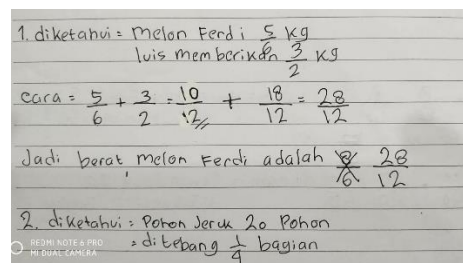 1. diketahui = Melon Ferdi 5/6 kg
luis memberikan 3/2 kg
cara = 5/6 + 3/2 = 10/12 + 18/12 = 28/12
Jadi berat melon Ferdi adalah 28/12
2. diketahui : Pohon Jeruk 20 Pohon
= ditebang 1/4 bagian
REDMI NOTE 6 PRO
MI DUAL CAMERA